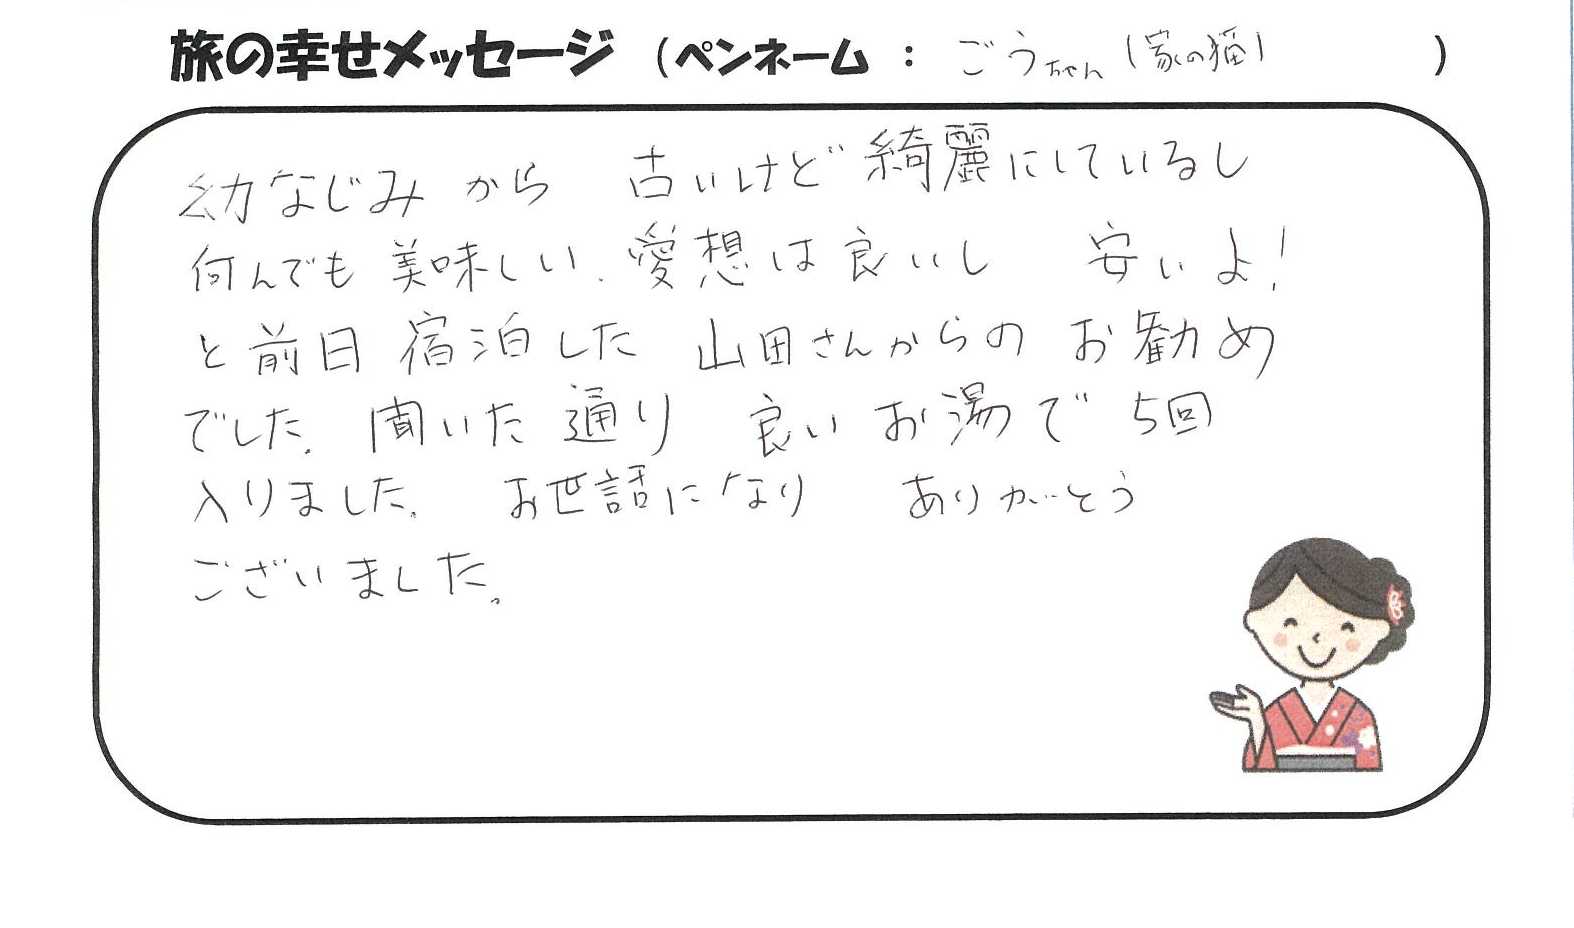 旅の幸せメッセージ (ペンネーム : ごうちゃん(家の猫) )
幼なじみから 古いけど綺麗にしているし
何んでも美味しい、愛想は良いし 安いよ!
と前日宿泊した 山田さんからのお勧め
でした。聞いた通り 良いお湯で 5回
入りました。 お世話になり ありがとう
ございました。